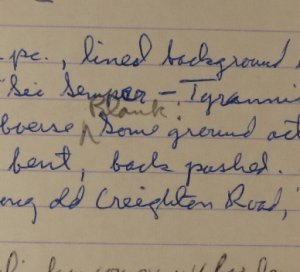 pc., lined background
"Sic Semper - Tyranni
Blank.
bverse ^ Some ground act
bent, back pushed.
ong old Creighton Road,